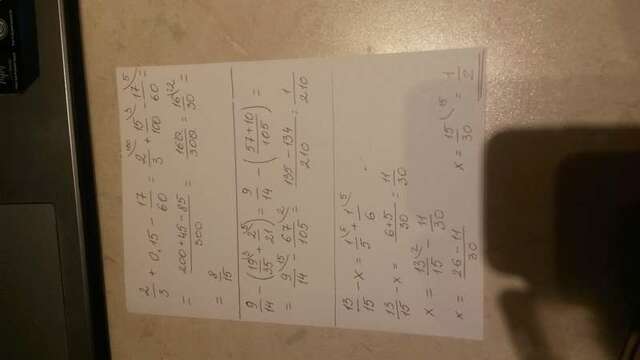 2/3 + 0,15 - 17/60 = 2/3 + 15/100 - 17/60 =
= (200+45-85)/300 = 160/300 = 16/30 =
= 8/15
9/14 - (19/35 + 2/21) = 9/14 - ((57+10)/105) =
= 9/14 - 67/105 = (135-134)/210 = 1/210
13/15 - x = 1/5 + 1/6
13/15 - x = (6+5)/30 = 11/30
x = 13/15 - 11/30
x = (26-11)/30 x = 15/30 = 1/2